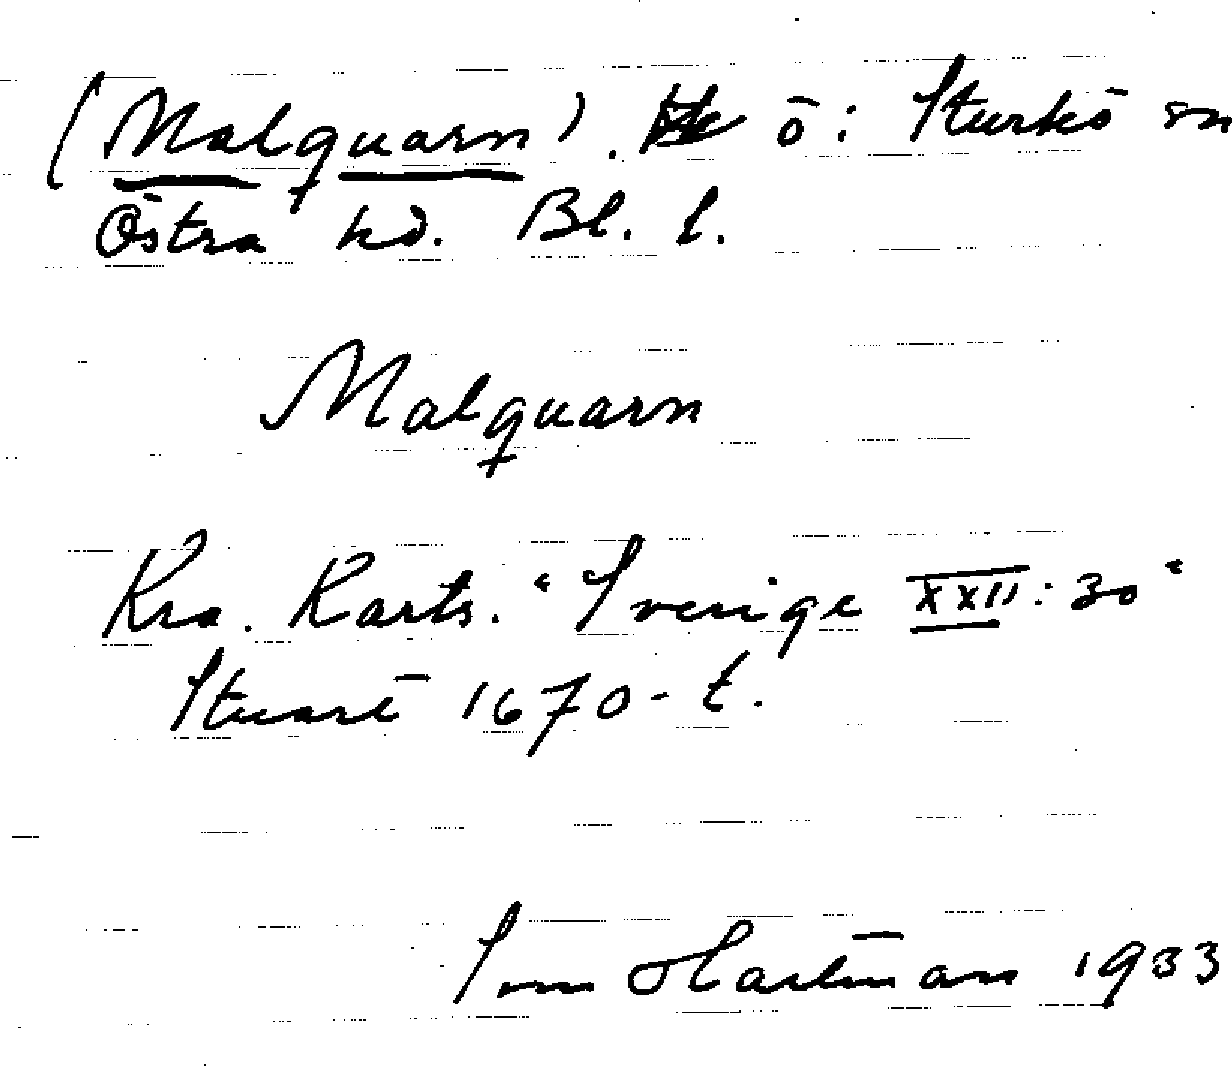 (Malquarn). ö: Sturkö sn
Östra hd. Bl. l.
Malquarn
Kra. Karts. "Sverige XXII:30"
Stuart 1670-t.
Hartman 1933